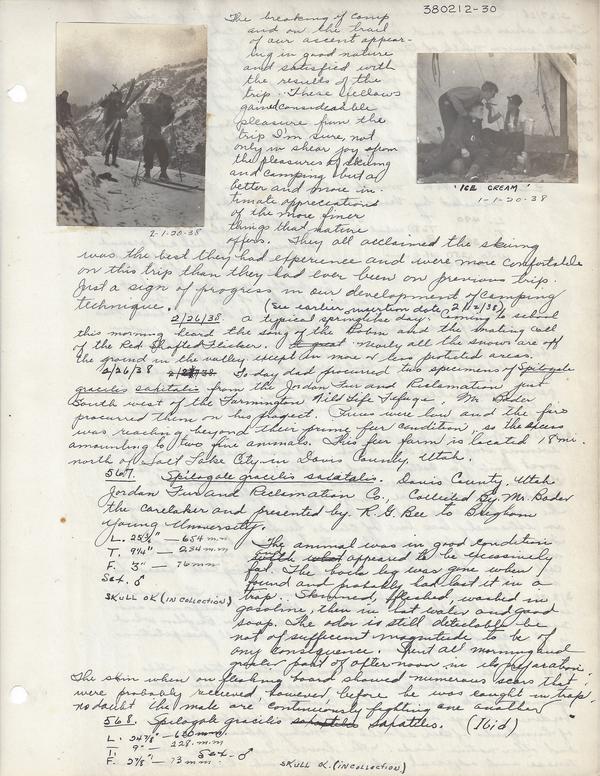 380212-30
The breaking of camp
and on the trail
of our ascent appear-
ing in good nature
and satisfied with
the results of the
trip. These fellows
gained considerable
pleasure from the
trip I'm sure, not
only in shear joy upon
the pleasures of skiing
and camping but a
better and more in-
timate appreciations
of the more finer
things that nature
offers. They all acclaimed the skiing
2-1-20-38
"ICE CREAM"
1-1-20-38
was the best they had experience and were more comfortable
on this trip than they had ever been on previous trip.
Just a sign of progress in our development of camping
technique.
(See earlier insertion date 2/12/38)
2/26/38 a typical springlike day. Coming to school
this morning heard the song of the Robin and the mating call
of the Red Shafted Flicker. Nearly all the snows are off
the ground in the valley except in more or less protected areas.
2/26/38 Today dad procured two specimens of Spilogale
gracilis saxatalis from the Jordan Fur and Reclamation just
South west of the Farmington Wild Life Refuge. Mr. Bader
procured them on his project. Furs were low and the fur
was reaching beyond their prime fur condition, so the excess
amounting to two fine animals. This fur farm is located 18 mi.
north of Salt Lake City in Davis County, Utah.
567. Spilogale gracilis saxatalis. Davis County, Utah
Jordan Fur and Reclamation Co., Collected By Mr. Bader
the caretaker and presented by R. G. Bee to Brigham
Young University.
L. 25¾" — 654 mm
T. 9¼" — 234 mm
F. 3" — 76 mm
Sex. ♂
SKULL OK (IN COLLECTION)
The animal was in good condition
appeared to be excessively
fat. The back leg was gone when I
found and probably had lost it in a
trap. Skinned, fleshed, washed in
gasoline, then in hot water and good
soap. The odor is still detectable be
not of sufficient magnitude to be of
any consequence. Spent all morning and
greater part of afternoon in its preparation.
The skin when on fleshing board showed numerous scars that
were probably received, however, before he was caught in trap,
no doubt the male are continuously fighting one another.
568. Spilogale gracilis saxatilis. (Ibid)
L. 24⅜" — 620 mm
T. 9" — 228 mm
F. 2⅞" — 73 mm
Sex - ♂
SKULL OK. (IN COLLECTION)